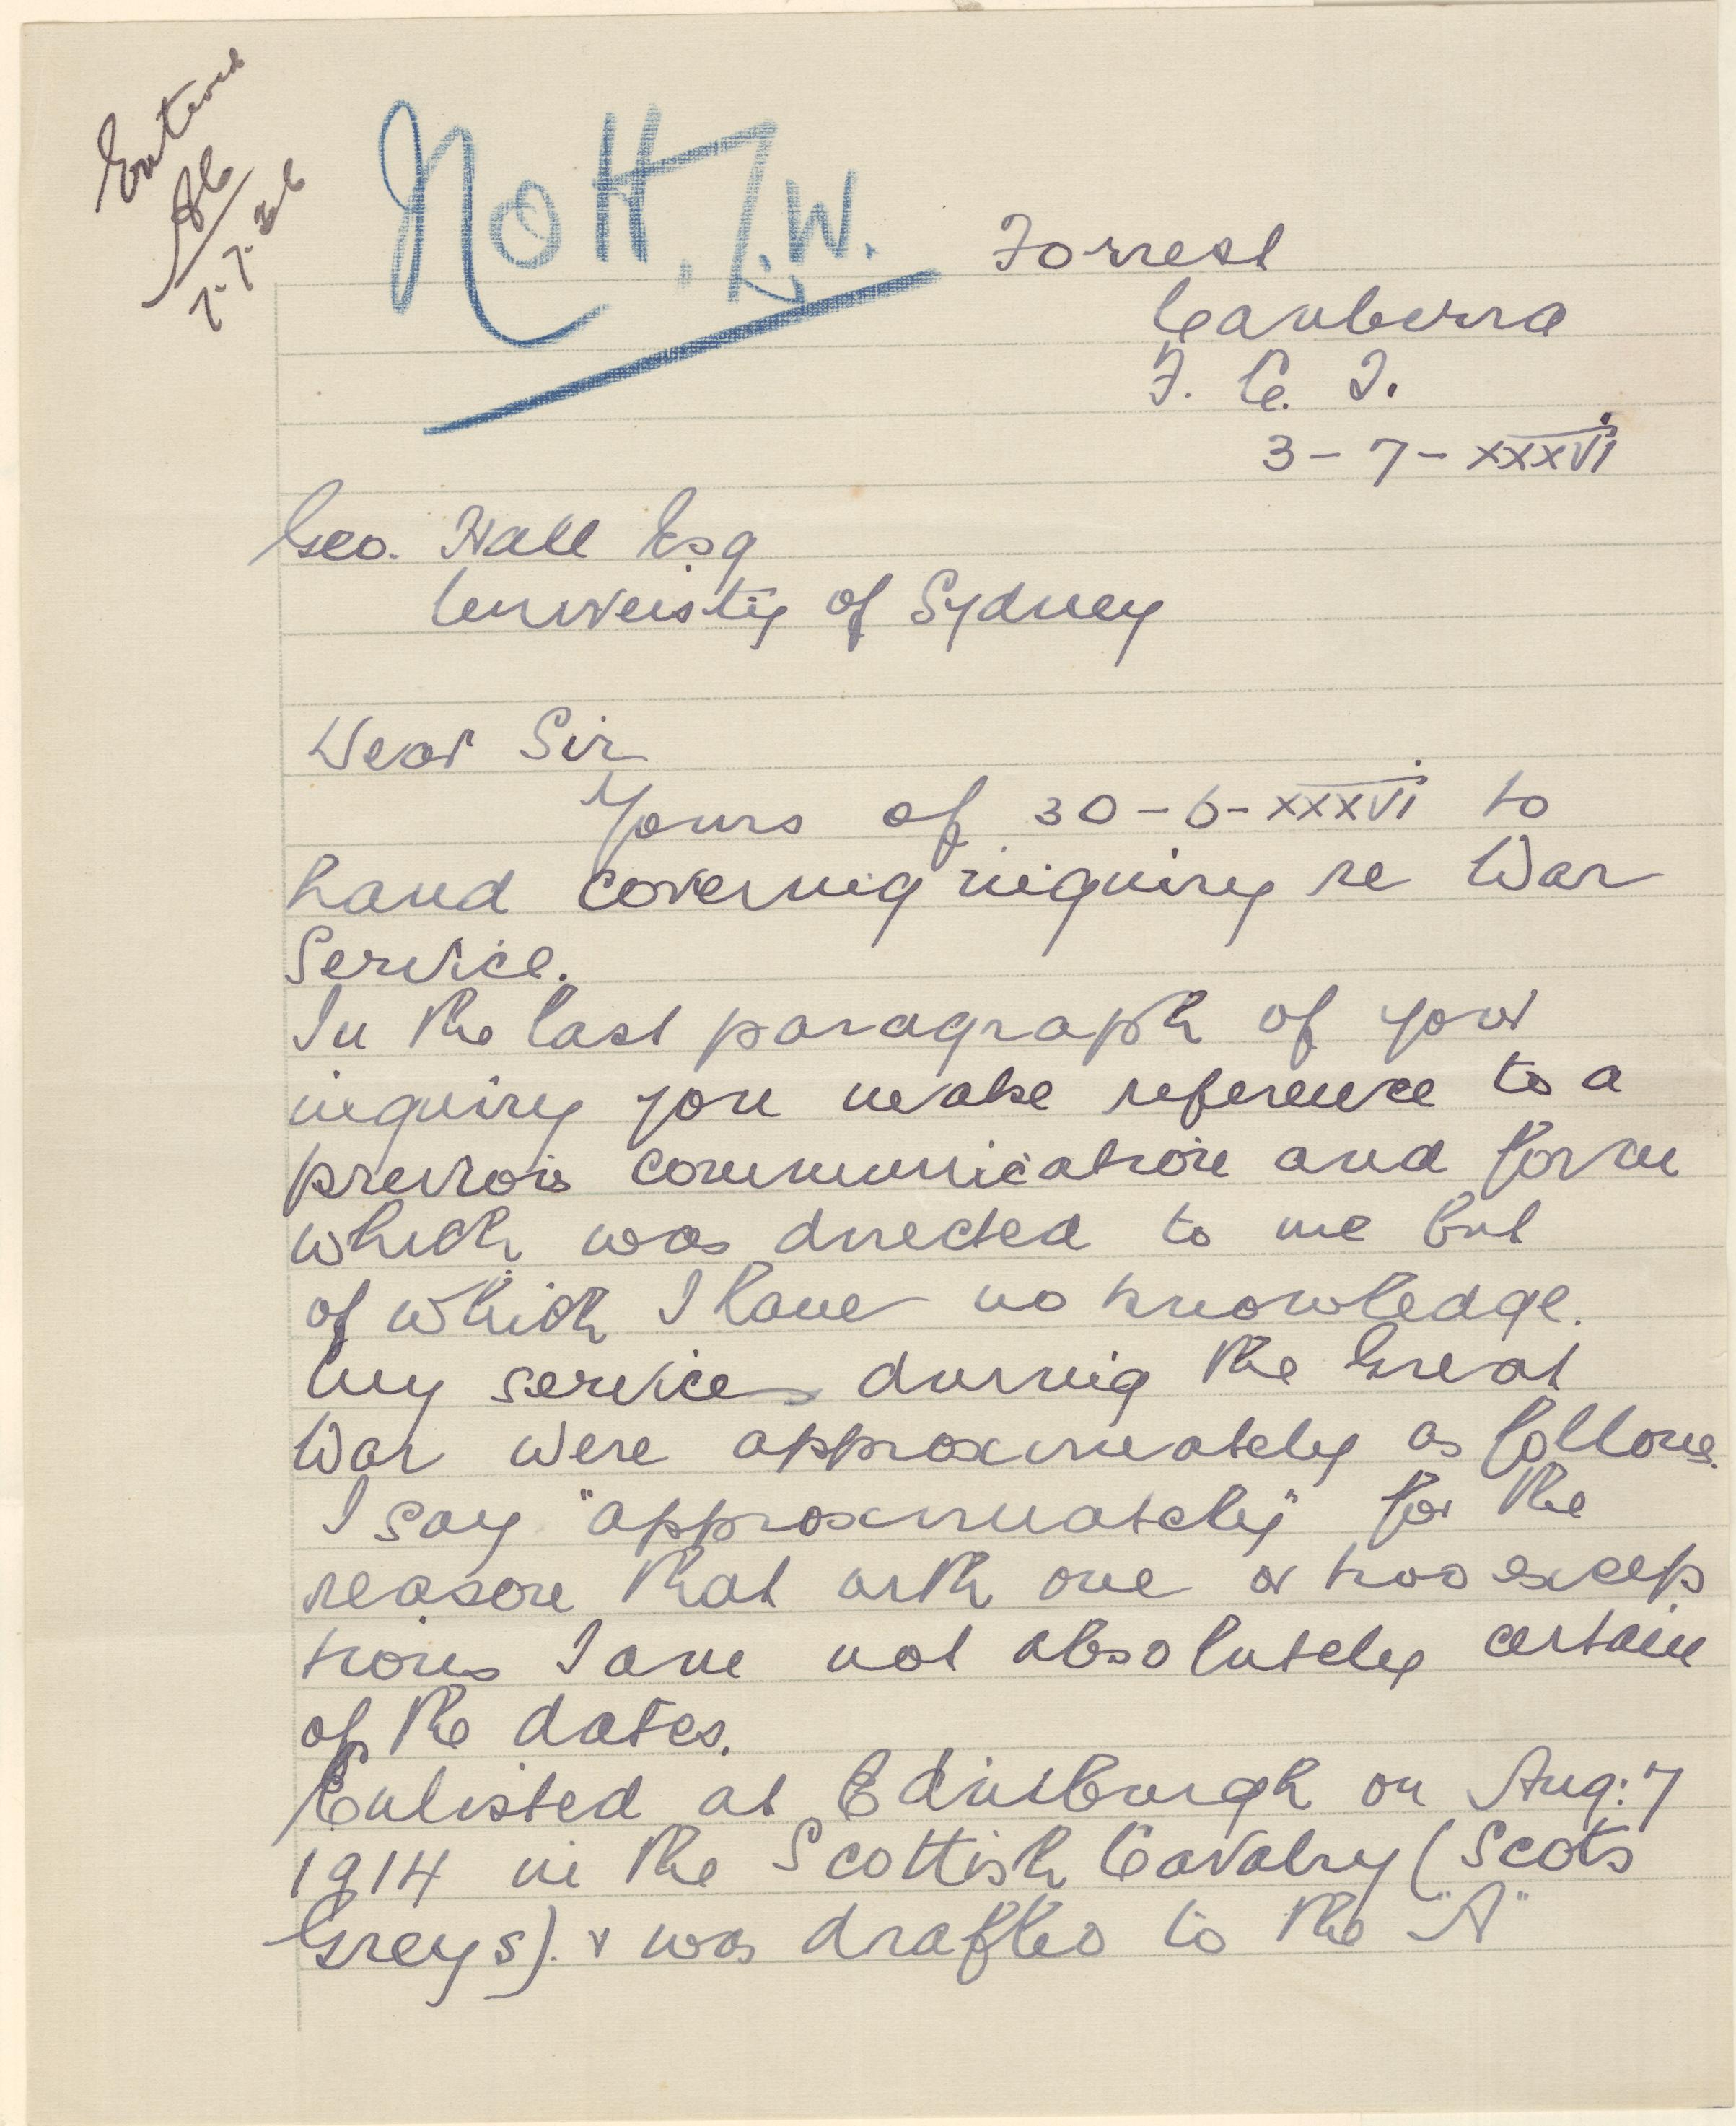 Entered
7.7.36
Nott. J.W.
Forrest
Canberra
F. C. T.
3-7-XXXVI
Geo. Hall Esq
University of Sydney
Dear Sir
Yours of 30-6-XXXVI to
hand covering inquiry re War
Service.
In the last paragraph of your
inquiry you make reference to a
previous communication and form
which was directed to me but
of which I have no knowledge.
My services during the Great
War were approximately as follows.
I say "approximately" for the
reason that with one or two excep
tions I am not absolutely certain
of the dates.
Enlisted at Edinburgh on Aug: 7
1914 in the Scottish Cavalry (Scots
Greys). & was drafted to the "A"